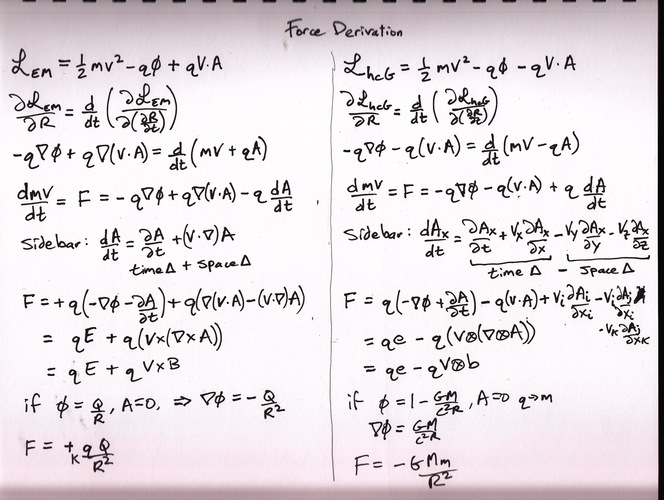 Force Derivation
ℒ_EM = 1/2 mv² - qϕ + qV·A
∂ℒ_EM/∂R = d/dt (∂ℒ_EM/∂(∂R/∂t))
-q∇ϕ + q∇(V·A) = d/dt (mV + qA)
dmV/dt = F = -q∇ϕ + q∇(V·A) - q dA/dt
Sidebar: dA/dt = ∂A/∂t + (V·∇)A
time Δ + space Δ
F = + q(-∇ϕ - ∂A/∂t) + q(∇(V·A) - (V·∇)A)
= qE + q(V×(∇×A))
= qE + q V×B
if ϕ = Q/R, A=0, ⇒ ∇ϕ = - Q/R²
F = +K qQ/R²
ℒ_hcG = 1/2 mv² - qϕ - qV·A
∂ℒ_hcG/∂R = d/dt (∂ℒ_hcG/∂(∂R/∂t))
-q∇ϕ - q(V·A) = d/dt (mV - qA)
dmV/dt = F = -q∇ϕ - q(V·A) + q dA/dt
Sidebar: dAx/dt = ∂Ax/∂t + Vx ∂Ax/∂x - Vy ∂Ax/∂y - Vz ∂Ax/∂z
time Δ - space Δ
F = q(-∇ϕ + ∂A/∂t) - q(V·A) + Vi ∂Ai/∂xi - Vj ∂Ai/∂xj
- VK ∂Aj/∂xK
= qe - q(V⊗(∇⊗A))
= qe - qV⊗b
if ϕ = 1 - GM/c²R, A=0 q→m
∇ϕ = GM/c²R
F = - GMm/R²